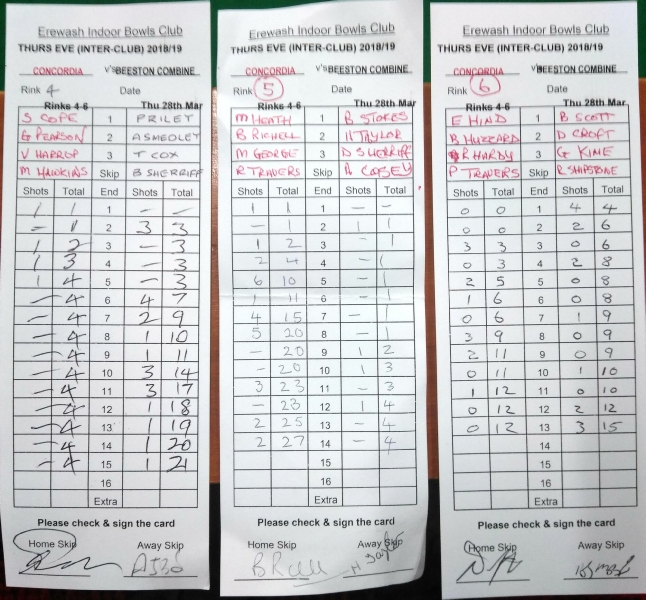 Erewash Indoor Bowls Club
THURS EVE (INTER-CLUB) 2018/19
CONCORDIA V's BEESTON COMBINE
Rink 4 Date
Rinks 4-6 Thu 28th Mar
S COPE 1 PRILEY
G PEARSON 2 A SMEDLEY
V HARROP 3 T COX
M HAWKINS Skip B SHERRIFF
Shots Total End Shots Total
1 1 1 - -
- 1 2 3 3
1 2 3 - 3
1 3 4 - 3
1 4 5 - 3
- 4 6 4 7
- 4 7 2 9
- 4 8 1 10
- 4 9 1 11
- 4 10 3 14
- 4 11 3 17
- 4 12 1 18
- 4 13 1 19
- 4 14 1 20
- 4 15 1 21
16
Extra
Please check & sign the card
Home Skip Away Skip
Erewash Indoor Bowls Club
THURS EVE (INTER-CLUB) 2018/19
CONCORDIA V's BEESTON COMBINE
Rink 5 Date
Rinks 4-6 Thu 28th Mar
M HEATH 1 B STOKES
B RICHELL 2 H TAYLOR
M GEORGE 3 D SHERRIFF
R TRAVERS Skip A CASEY
Shots Total End Shots Total
1 1 1 - -
- 1 2 1 1
1 2 3 - 1
2 4 4 - 1
6 10 5 - 1
1 11 6 - 1
4 15 7 - 1
5 20 8 - 1
- 20 9 1 2
- 20 10 1 3
3 23 11 - 3
- 23 12 1 4
2 25 13 - 4
2 27 14 - 4
15
16
Extra
Please check & sign the card
Home Skip Away Skip
Erewash Indoor Bowls Club
THURS EVE (INTER-CLUB) 2018/19
CONCORDIA V's BEESTON COMBINE
Rink 6 Date
Rinks 4-6 Thu 28th Mar
E HIND 1 B SCOTT
B HUZZARD 2 D CROFT
R HARDY 3 G KIME
P TRAVERS Skip R SHIPSTONE
Shots Total End Shots Total
0 0 1 4 4
0 0 2 2 6
3 3 3 0 6
0 3 4 2 8
2 5 5 0 8
1 6 6 0 8
0 6 7 1 9
3 9 8 0 9
2 11 9 0 9
0 11 10 1 10
1 12 11 0 10
0 12 12 2 12
0 12 13 3 15
14
15
16
Extra
Please check & sign the card
Home Skip Away Skip